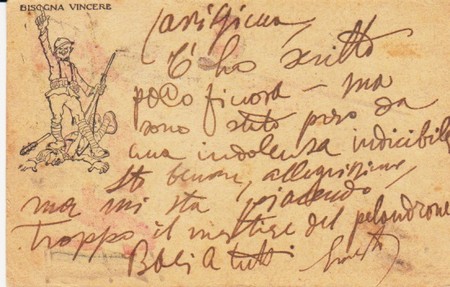 BISOGNA VINCERE
Carissima,
T'ho scritto
poco finora – ma
sono stato preso da
una indolenza indicibile
Sto benone, allegrissimo,
ma mi sta piacendo
troppo il mestiere del pelandrone
Baci a tutti